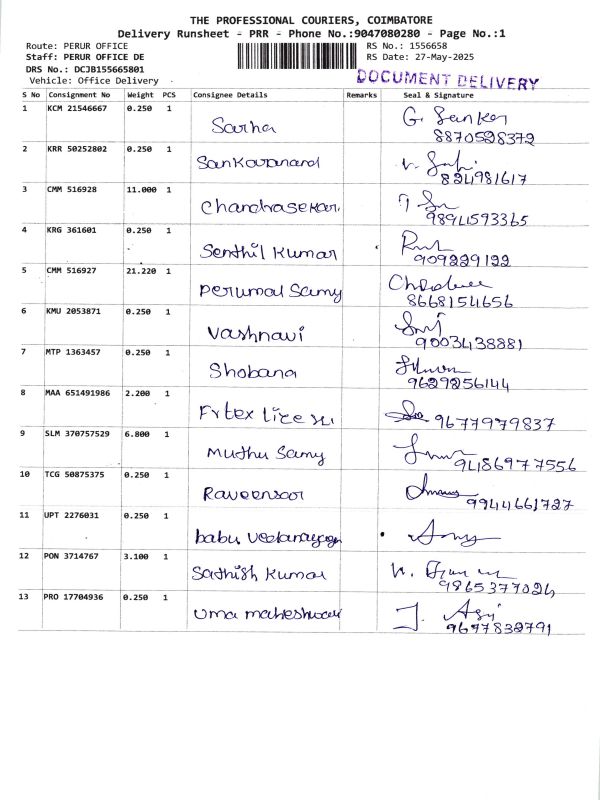 THE PROFESSIONAL COURIERS, COIMBATORE
Delivery Runsheet - PRR - Phone No.:9047080280 - Page No.:1
Route: PERUR OFFICE RS No.: 1556658
Staff: PERUR OFFICE DE RS Date: 27-May-2025
DRS No.: DCJB155665801
Vehicle: Office Delivery
DOCUMENT DELIVERY
S No Consignment No Weight PCS Consignee Details Remarks Seal & Signature
1 KCM 21546667 0.250 1 G. Sankar
8870528372
2 KRR 50252802 0.250 1 Sankaranand
824981617
3 CMM 516928 11.000 1 Chandrasekar.
9894593365
4 KRG 361601 0.250 1 Senthil Kumar
909229122
5 CMM 516927 21.220 1 Perumal Samy
8668154656
6 KMU 2053871 0.250 1 Vashnavi
9003438881
7 MTP 1363457 0.250 1 Shobana
9629256144
8 MAA 651491986 2.200 1 9677979837
9 SLM 370757529 6.800 1 Muthu Samy
9486977556
10 TCG 50875375 0.250 1
9944661727
11 UPT 2276031 0.250 1 babu
12 PON 3714767 3.100 1 Sathish Kumar
9865377026
13 PRO 17704936 0.250 1 Uma maheshwari
9697832791